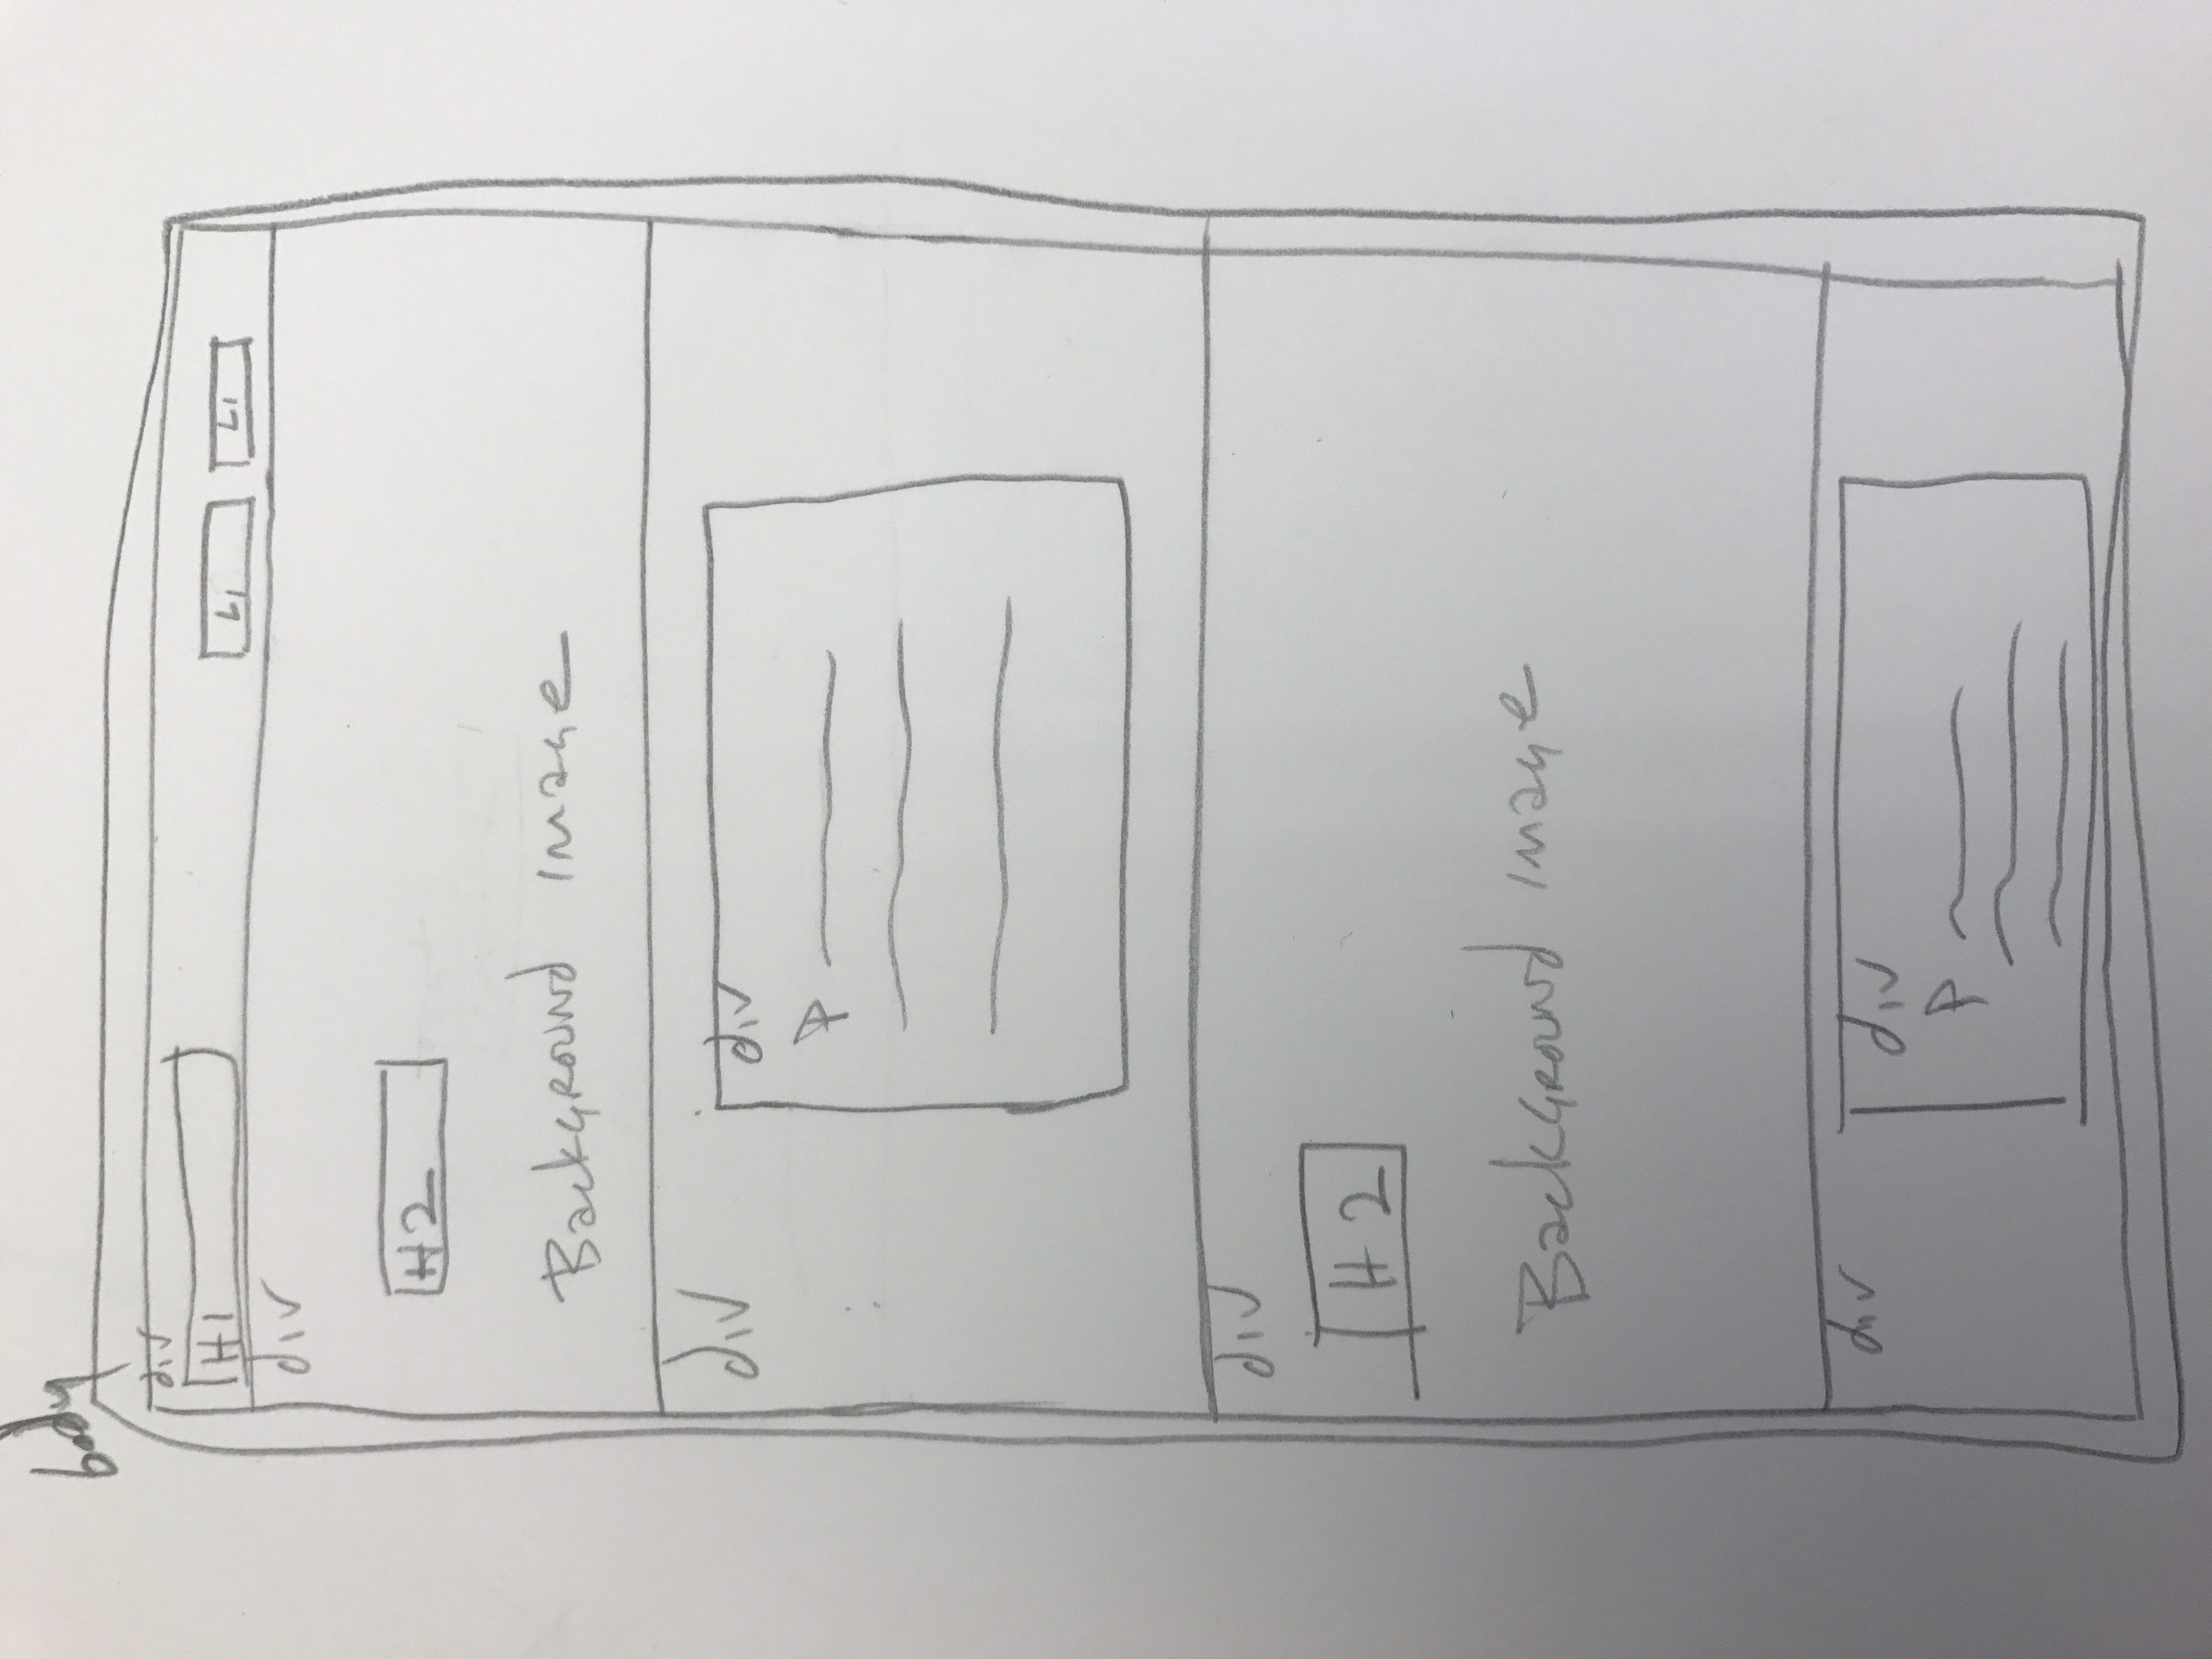 body
div
H1 Li Li
div
H2
Background image
div
div
P
div
H2
Background image
div
div
P